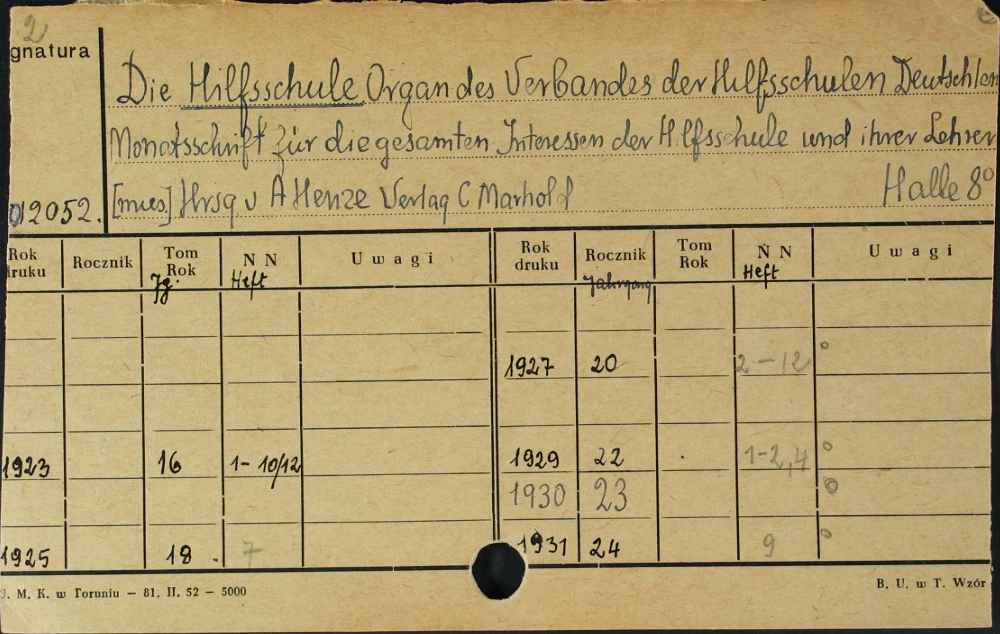 2
gnatura
Die Hilfsschule Organ des Verbandes der Hilfsschulen Deutschlan
Monatsschrift für die gesamten Interessen der Hilfsschule und ihrer Lehrer
012052. [mies.] Hrsg v A Henze Verlag C Marhold Halle 8°
Rok druku Rocznik Tom Rok N N Uwagi Rok druku Rocznik Tom Rok N N Uwagi
Jg. Heft Jahrgang Heft
1927 20 2-12 °
1923 16 1-10/12 1929 22 1-2,4 °
1930 23 °
1925 18. 7 1931 24 9 °
J. M. K. w Toruniu — 81. II. 52 — 5000 B. U. w T. Wzór